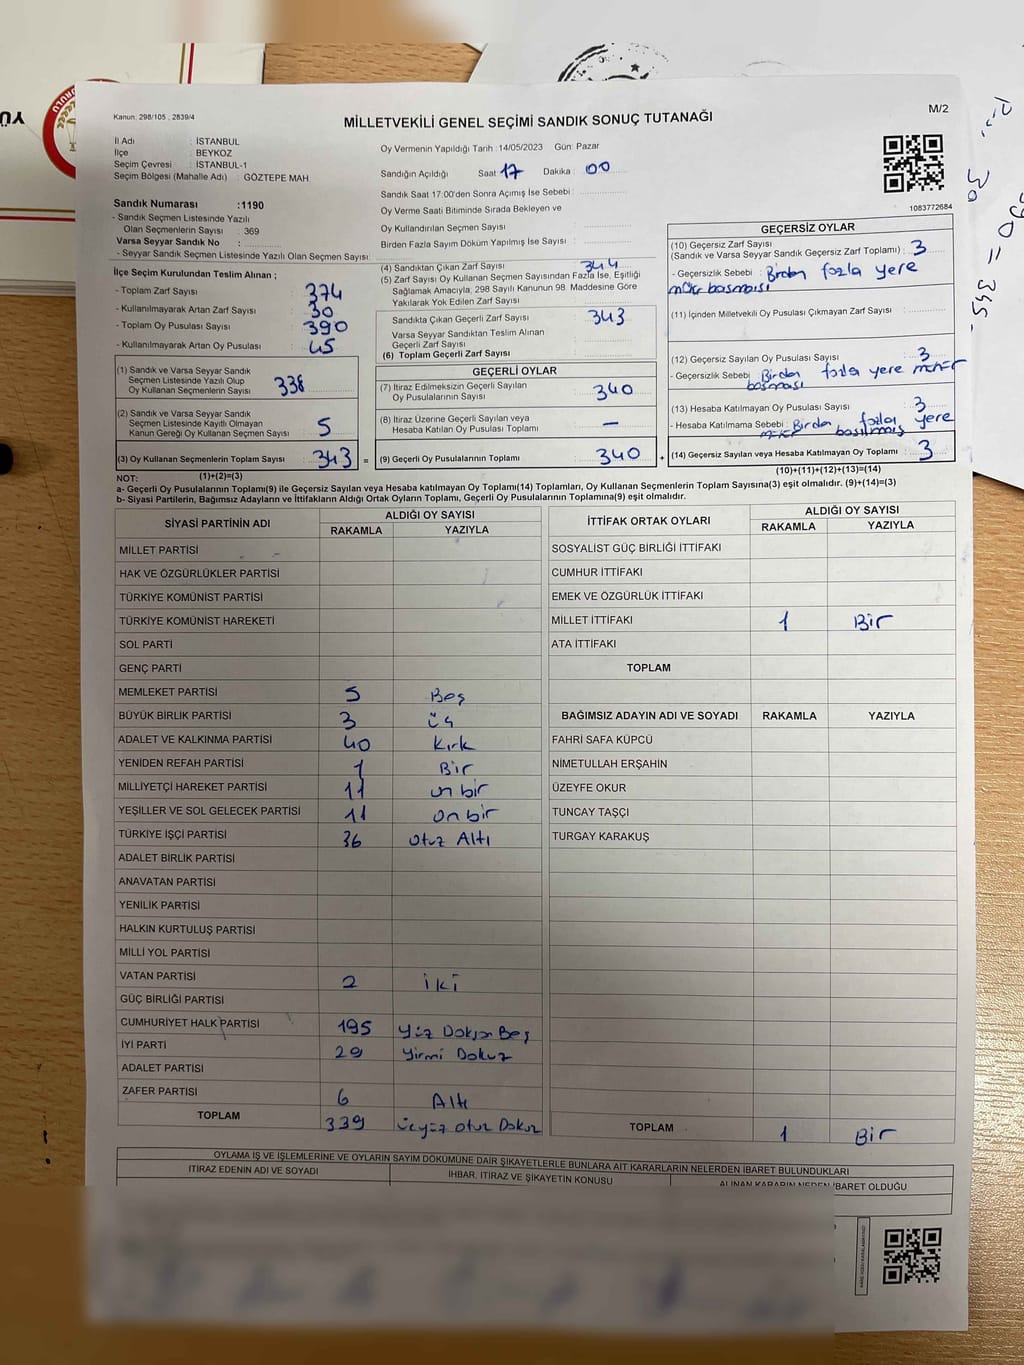 Kanun, 298/105 , 2839/4
M/2
MİLLETVEKİLİ GENEL SEÇİMİ SANDIK SONUÇ TUTANAĞI
İl Adı : İSTANBUL
İlçe : BEYKOZ
Seçim Çevresi : İSTANBUL-1
Seçim Bölgesi (Mahalle Adı) : GÖZTEPE MAH
Sandık Numarası :1190
- Sandık Seçmen Listesinde Yazılı
Olan Seçmenlerin Sayısı : 369
Varsa Seyyar Sandık No :
- Seyyar Sandık Seçmen Listesinde Yazılı Olan Seçmen Sayısı:
Oy Vermenin Yapıldığı Tarih :14/05/2023 Gün: Pazar
Sandığın Açıldığı Saat : 17 Dakika : 00
Sandık Saat 17:00'den Sonra Açımış İse Sebebi :
Oy Verme Saati Bitiminde Sırada Bekleyen ve
Oy Kullandırılan Seçmen Sayısı :
Birden Fazla Sayım Döküm Yapılmış İse Sayısı :
1083772684
İlçe Seçim Kurulundan Teslim Alınan ;
- Toplam Zarf Sayısı : 374
- Kullanılmayarak Artan Zarf Sayısı : 30
- Toplam Oy Pusulası Sayısı : 390
- Kullanılmayarak Artan Oy Pusulası : 45
(1) Sandık ve Varsa Seyyar Sandık
Seçmen Listesinde Yazılı Olup
Oy Kullanan Seçmenlerin Sayısı : 338
(2) Sandık ve Varsa Seyyar Sandık
Seçmen Listesinde Kayıtlı Olmayan
Kanun Gereği Oy Kullanan Seçmen Sayısı : 5
(3) Oy Kullanan Seçmenlerin Toplam Sayısı : 343 =
(1)+(2)=(3)
(4) Sandıktan Çıkan Zarf Sayısı : 344
(5) Zarf Sayısı Oy Kullanan Seçmen Sayısından Fazla İse, Eşitliği
Sağlamak Amacıyla, 298 Sayılı Kanunun 98. Maddesine Göre
Yakılarak Yok Edilen Zarf Sayısı :
Sandıkta Çıkan Geçerli Zarf Sayısı : 343
Varsa Seyyar Sandıktan Teslim Alınan
Geçerli Zarf Sayısı :
(6) Toplam Geçerli Zarf Sayısı :
GEÇERLİ OYLAR
(7) İtiraz Edilmeksizin Geçerli Sayılan
Oy Pusulasının Sayısı : 340
(8) İtiraz Üzerine Geçerli Sayılan veya
Hesaba Katılan Oy Pusulası Toplamı : —
(9) Geçerli Oy Pusulalarının Toplamı : 340 +
GEÇERSİZ OYLAR
(10) Geçersiz Zarf Sayısı
(Sandık ve Varsa Seyyar Sandık Geçersiz Zarf Toplamı) : 3
- Geçersizlik Sebebi : Birden fazla yere
mühür basması
(11) İçinden Milletvekili Oy Pusulası Çıkmayan Zarf Sayısı :
(12) Geçersiz Sayılan Oy Pusulası Sayısı : 3
- Geçersizlik Sebebi : Birden fazla yere mühür
basması
(13) Hesaba Katılmayan Oy Pusulası Sayısı : 3
- Hesaba Katılmama Sebebi : Birden fazla yere
basılmış
(14) Geçersiz Sayılan veya Hesaba Katılmayan Oy Toplamı : 3
(10)+(11)+(12)+(13)=(14)
NOT:
a- Geçerli Oy Pusulalarının Toplamı(9) ile Geçersiz Sayılan veya Hesaba katılmayan Oy Toplamı(14) Toplamları, Oy Kullanan Seçmenlerin Toplam Sayısına(3) eşit olmalıdır. (9)+(14)=(3)
b- Siyasi Partilerin, Bağımsız Adayların ve İttifakların Aldığı Ortak Oyların Toplamı, Geçerli Oy Pusulalarının Toplamına(9) eşit olmalıdır.
SİYASİ PARTİNİN ADI
ALDIĞI OY SAYISI
RAKAMLA YAZIYLA
MİLLET PARTİSİ
HAK VE ÖZGÜRLÜKLER PARTİSİ
TÜRKİYE KOMÜNİST PARTİSİ
TÜRKİYE KOMÜNİST HAREKETİ
SOL PARTİ
GENÇ PARTİ
MEMLEKET PARTİSİ 5 Beş
BÜYÜK BİRLİK PARTİSİ 3 üç
ADALET VE KALKINMA PARTİSİ 40 Kırk
YENİDEN REFAH PARTİSİ 1 Bir
MİLLİYETÇİ HAREKET PARTİSİ 11 on bir
YEŞİLLER VE SOL GELECEK PARTİSİ 11 on bir
TÜRKİYE İŞÇİ PARTİSİ 36 otuz Altı
ADALET BİRLİK PARTİSİ
ANAVATAN PARTİSİ
YENİLİK PARTİSİ
HALKIN KURTULUŞ PARTİSİ
MİLLİ YOL PARTİSİ
VATAN PARTİSİ 2 iki
GÜÇ BİRLİĞİ PARTİSİ
CUMHURİYET HALK PARTİSİ 195 Yüz Doksan Beş
İYİ PARTİ 29 Yirmi Dokuz
ADALET PARTİSİ
ZAFER PARTİSİ 6 Altı
TOPLAM 339 üçyüz otuz Dokuz
İTTİFAK ORTAK OYLARI
ALDIĞI OY SAYISI
RAKAMLA YAZIYLA
SOSYALİST GÜÇ BİRLİĞİ İTTİFAKI
CUMHUR İTTİFAKI
EMEK VE ÖZGÜRLÜK İTTİFAKI
MİLLET İTTİFAKI 1 Bir
ATA İTTİFAKI
TOPLAM
BAĞIMSIZ ADAYIN ADI VE SOYADI RAKAMLA YAZIYLA
FAHRİ SAFA KÜPCÜ
NİMETULLAH ERŞAHİN
ÜZEYFE OKUR
TUNCAY TAŞÇI
TURGAY KARAKUŞ
TOPLAM 1 Bir
OYLAMA İŞ VE İŞLEMLERİNE VE OYLARIN SAYIM DÖKÜMÜNE DAİR ŞİKAYETLERLE BUNLARA AİT KARARLARIN NELERDEN İBARET BULUNDUKLARI
İTİRAZ EDENİN ADI VE SOYADI
İHBAR, İTİRAZ VE ŞİKAYETİN KONUSU
ALINAN KARARIN NEDEN İBARET OLDUĞU